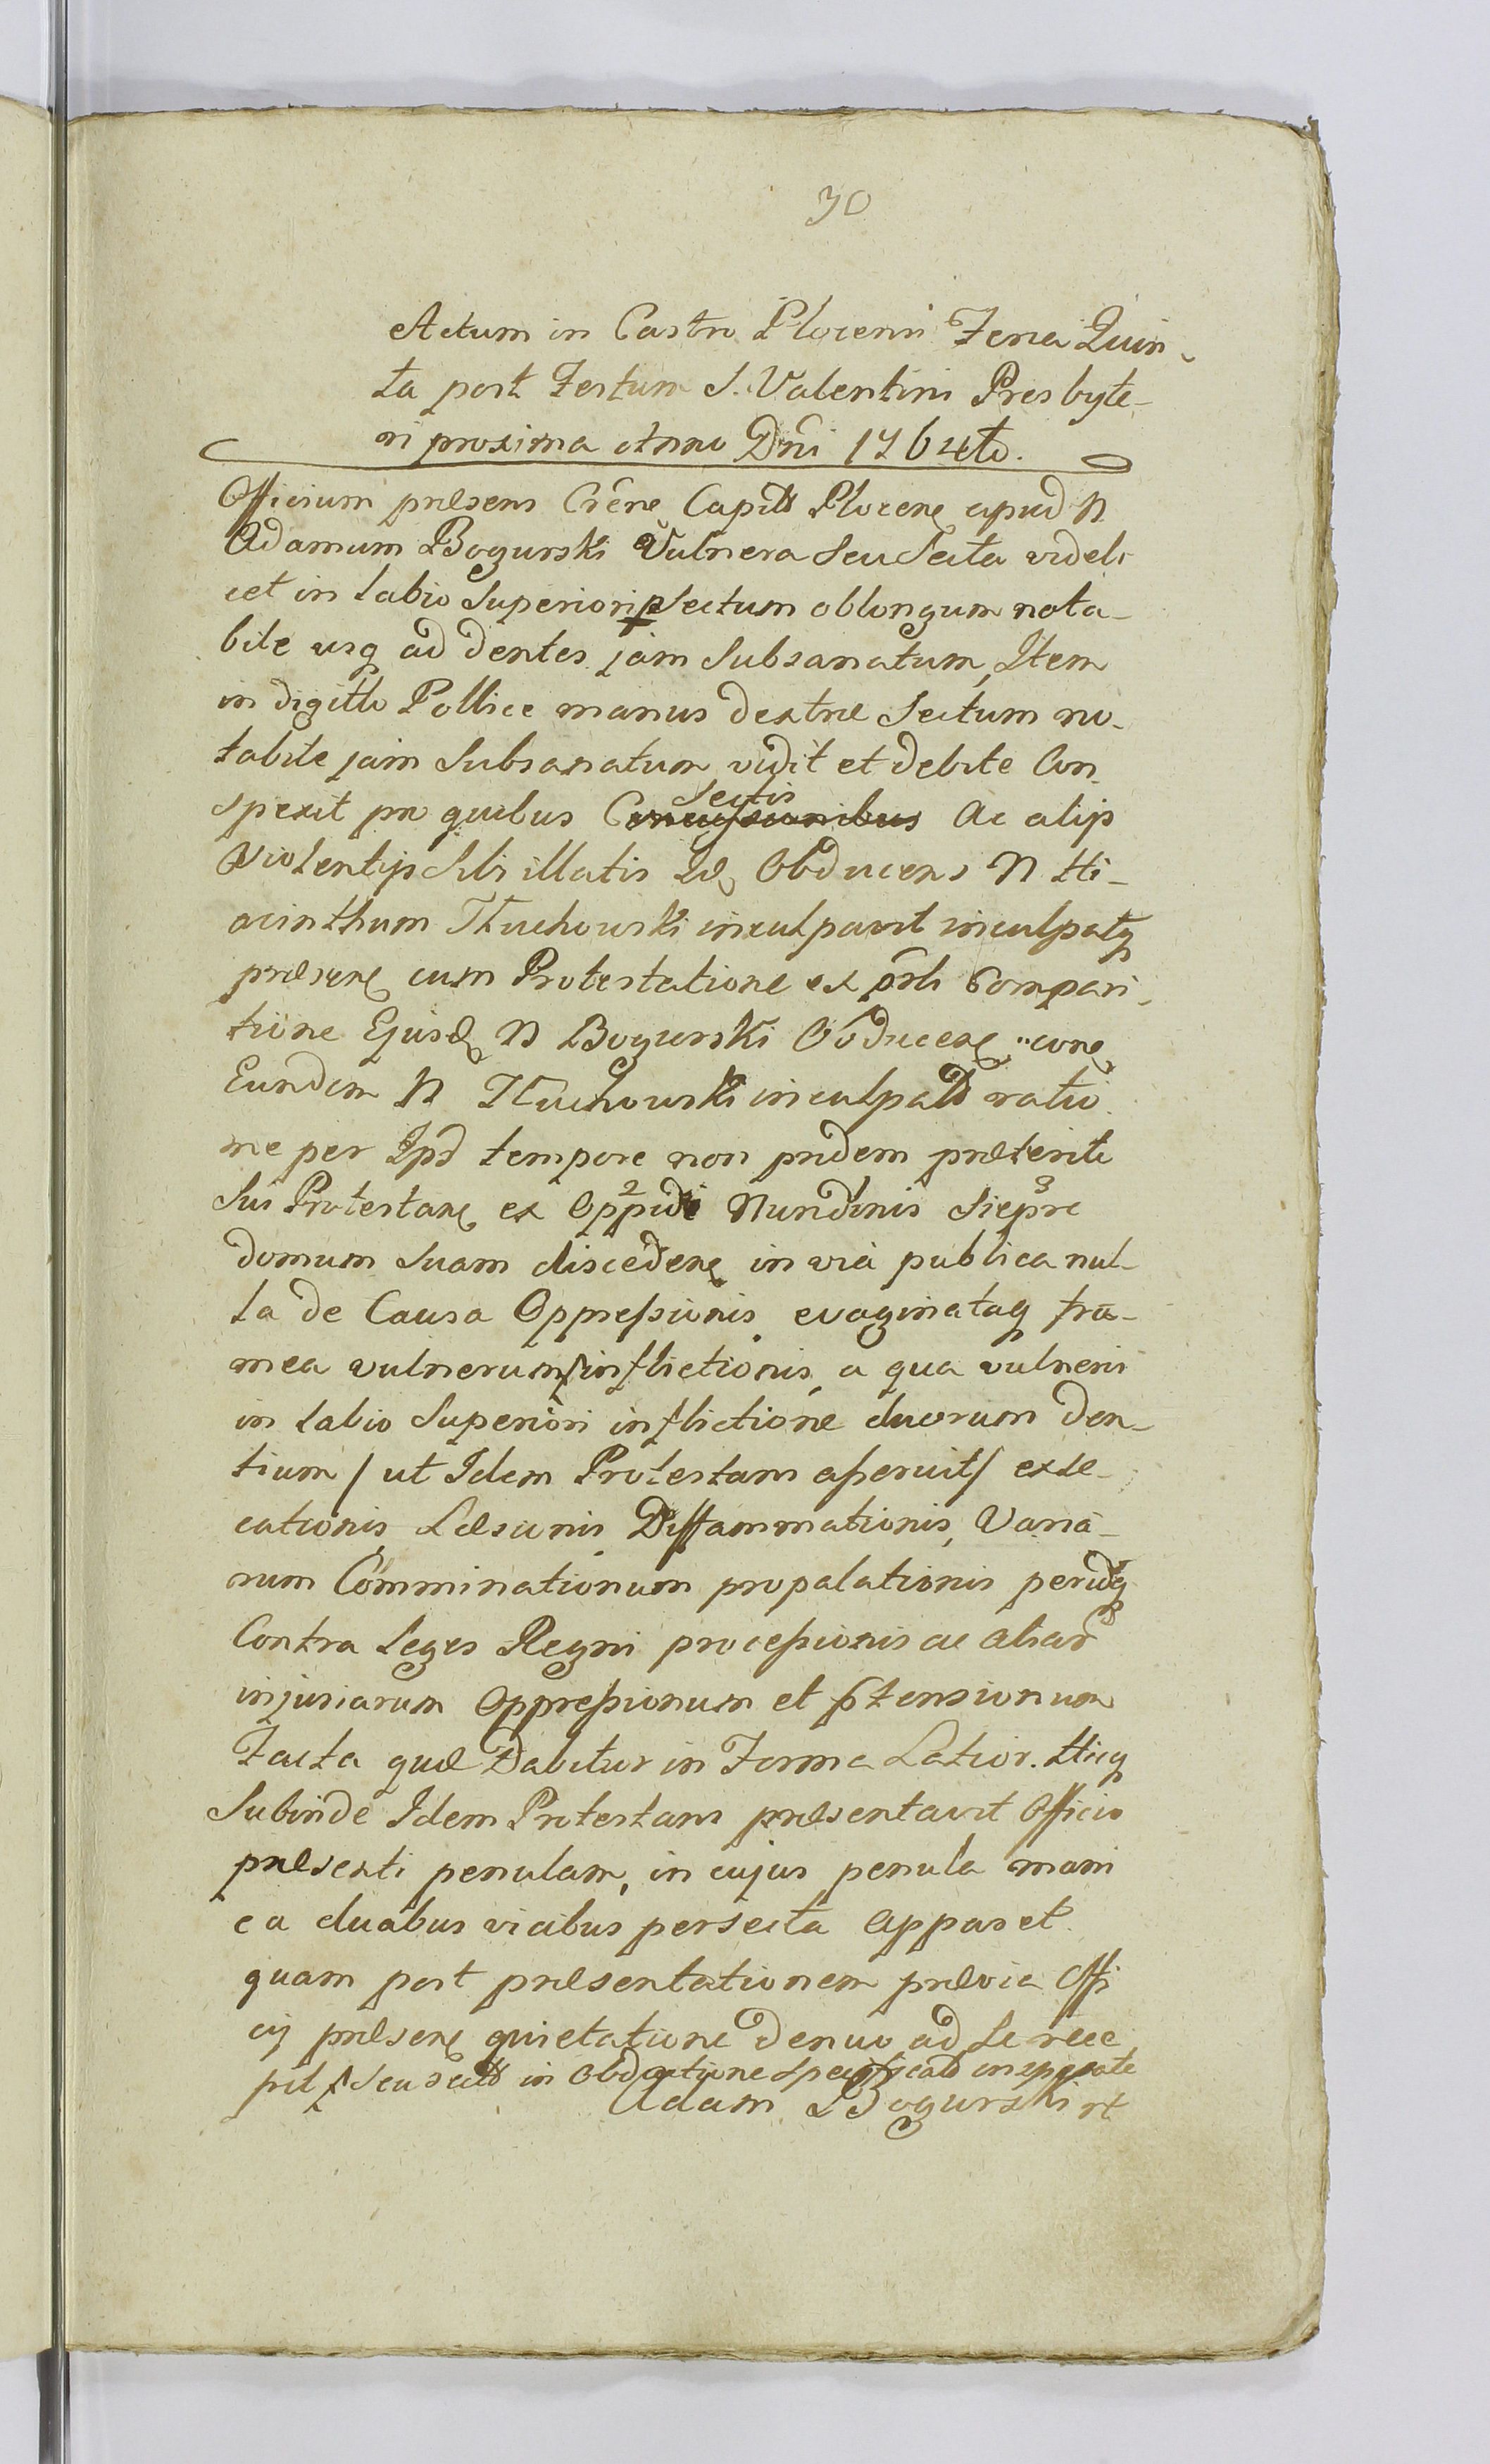 30
Actum in Castro Plocensi Feria Quin-
ta post Festum S. Valentini Presbyte-
ri proxima Anno Dñi 1764to.
Officium præsens Crêne Capitt Plocene apud N
Adamum Bogurski Vulnera Seu Secta videli
cet in labio Superiori Sectum oblongum nota-
bile usq ad dentes jam Subsanatum, Item
in digitto Pollice manus dextræ Sectum no-
tabile jam Subsanatum vidit et debite Con
spexit pro quibus Sectis Ac alijs
Violentijs Sibi illatis Id Obducens N Hi-
acinthum Tłuchowski inculpavit inculpatq
præsene cum Protestatione ex prsti Compari-
tione Ejusd N Bogurski Obducene cone
Eundem N Tłuchowski inculpatt ratio
ne per Ipd tempore non pridem præteriti
Sui Protestane ex Oppidi 2 Nundinis Siepre 3
domum Suam discedene in via publica nul-
la de Causa Oppressionis evaginataq fra-
mea vulnerum inflictionis, a qua vulneris
in labio Superiori inflictione duorum den-
tium / ut Idem Protestans asseruit / exse-
cationis Læsionis Diffammationis, Varia-
rum Comminationum propalationis periq
Contra Leges Regni processionis ac aliar
injuriarum Oppressionum et ptensionum
Facta quæ Dabitur in Forma Latior. Hicq
Subinde Idem Protestans præsentavit Officio
præsenti penulam, in cujus penula mani
ca duabus vicibus persecta apparet
quam post præsentationem prævia Offi
cij præsene quietatione denuo ad Se rece
pit Seu sectt in Obductione specificatt
Adam Bogurski